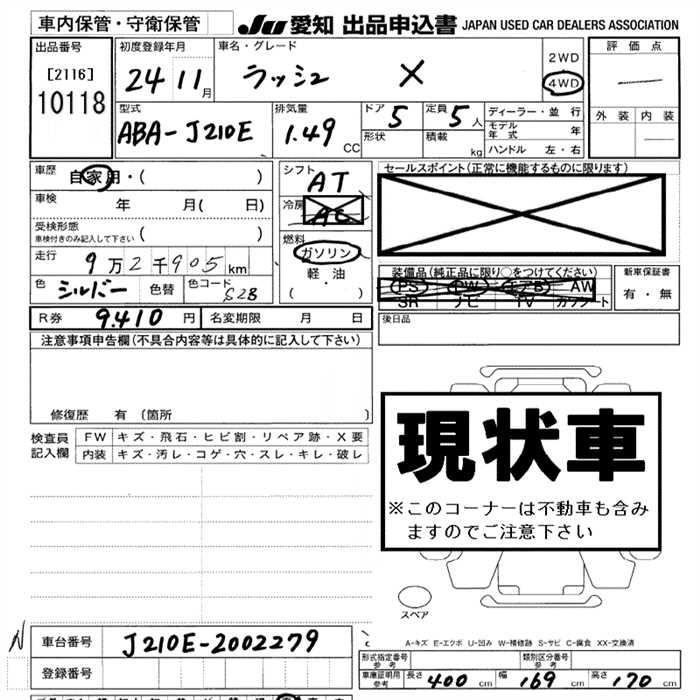 車内保管・守衛保管 JU 愛知 出品申込書 JAPAN USED CAR DEALERS ASSOCIATION
出品番号 初度登録年月 車名・グレード 2WD 評価点
[2116] 24 11月 ラッシュ X 4WD
10118 型式 排気量 ドア 5 定員 5人 ディーラー・並行 外装 内装
ABA-J210E 1.49 CC 形状 積載 kg モデル年式 年
ハンドル 左・右
車歴 自家用・( ) シフト AT セールスポイント(正常に機能するものに限ります)
車検 年 月( 日) 冷房 AC
受検形態 ( )
車検付きのみ記入して下さい
燃料 ガソリン
走行 9万2千905km 軽・油 装備品(純正品に限り○をつけてください) 新車保証書
色 シルバー 色替 色コード S28 ( ・ ) PS PW エアB AW 有・無
SR ナビ TV カワシート
R券 9.410 円 名変期限 月 日 後日品
注意事項申告欄(不具合内容等は具体的に記入して下さい)
修復歴 有(箇所 )
現状車
※このコーナーは不動車も含み
ますのでご注意下さい
検査員 FW キズ・飛石・ヒビ割・リペア跡・X要
記入欄 内装 キズ・汚レ・コゲ・穴・スレ・キレ・破レ
スペア
N 車台番号 J210E-2002279 A-キズ E-エクボ U-凹み W-補修跡 S-サビ C-腐食 XX-交換済
登録番号 形式指定番号 参考 類別区分番号 参考
車庫証明用 参考 長さ 400 cm 幅 169 cm 高さ 170 cm